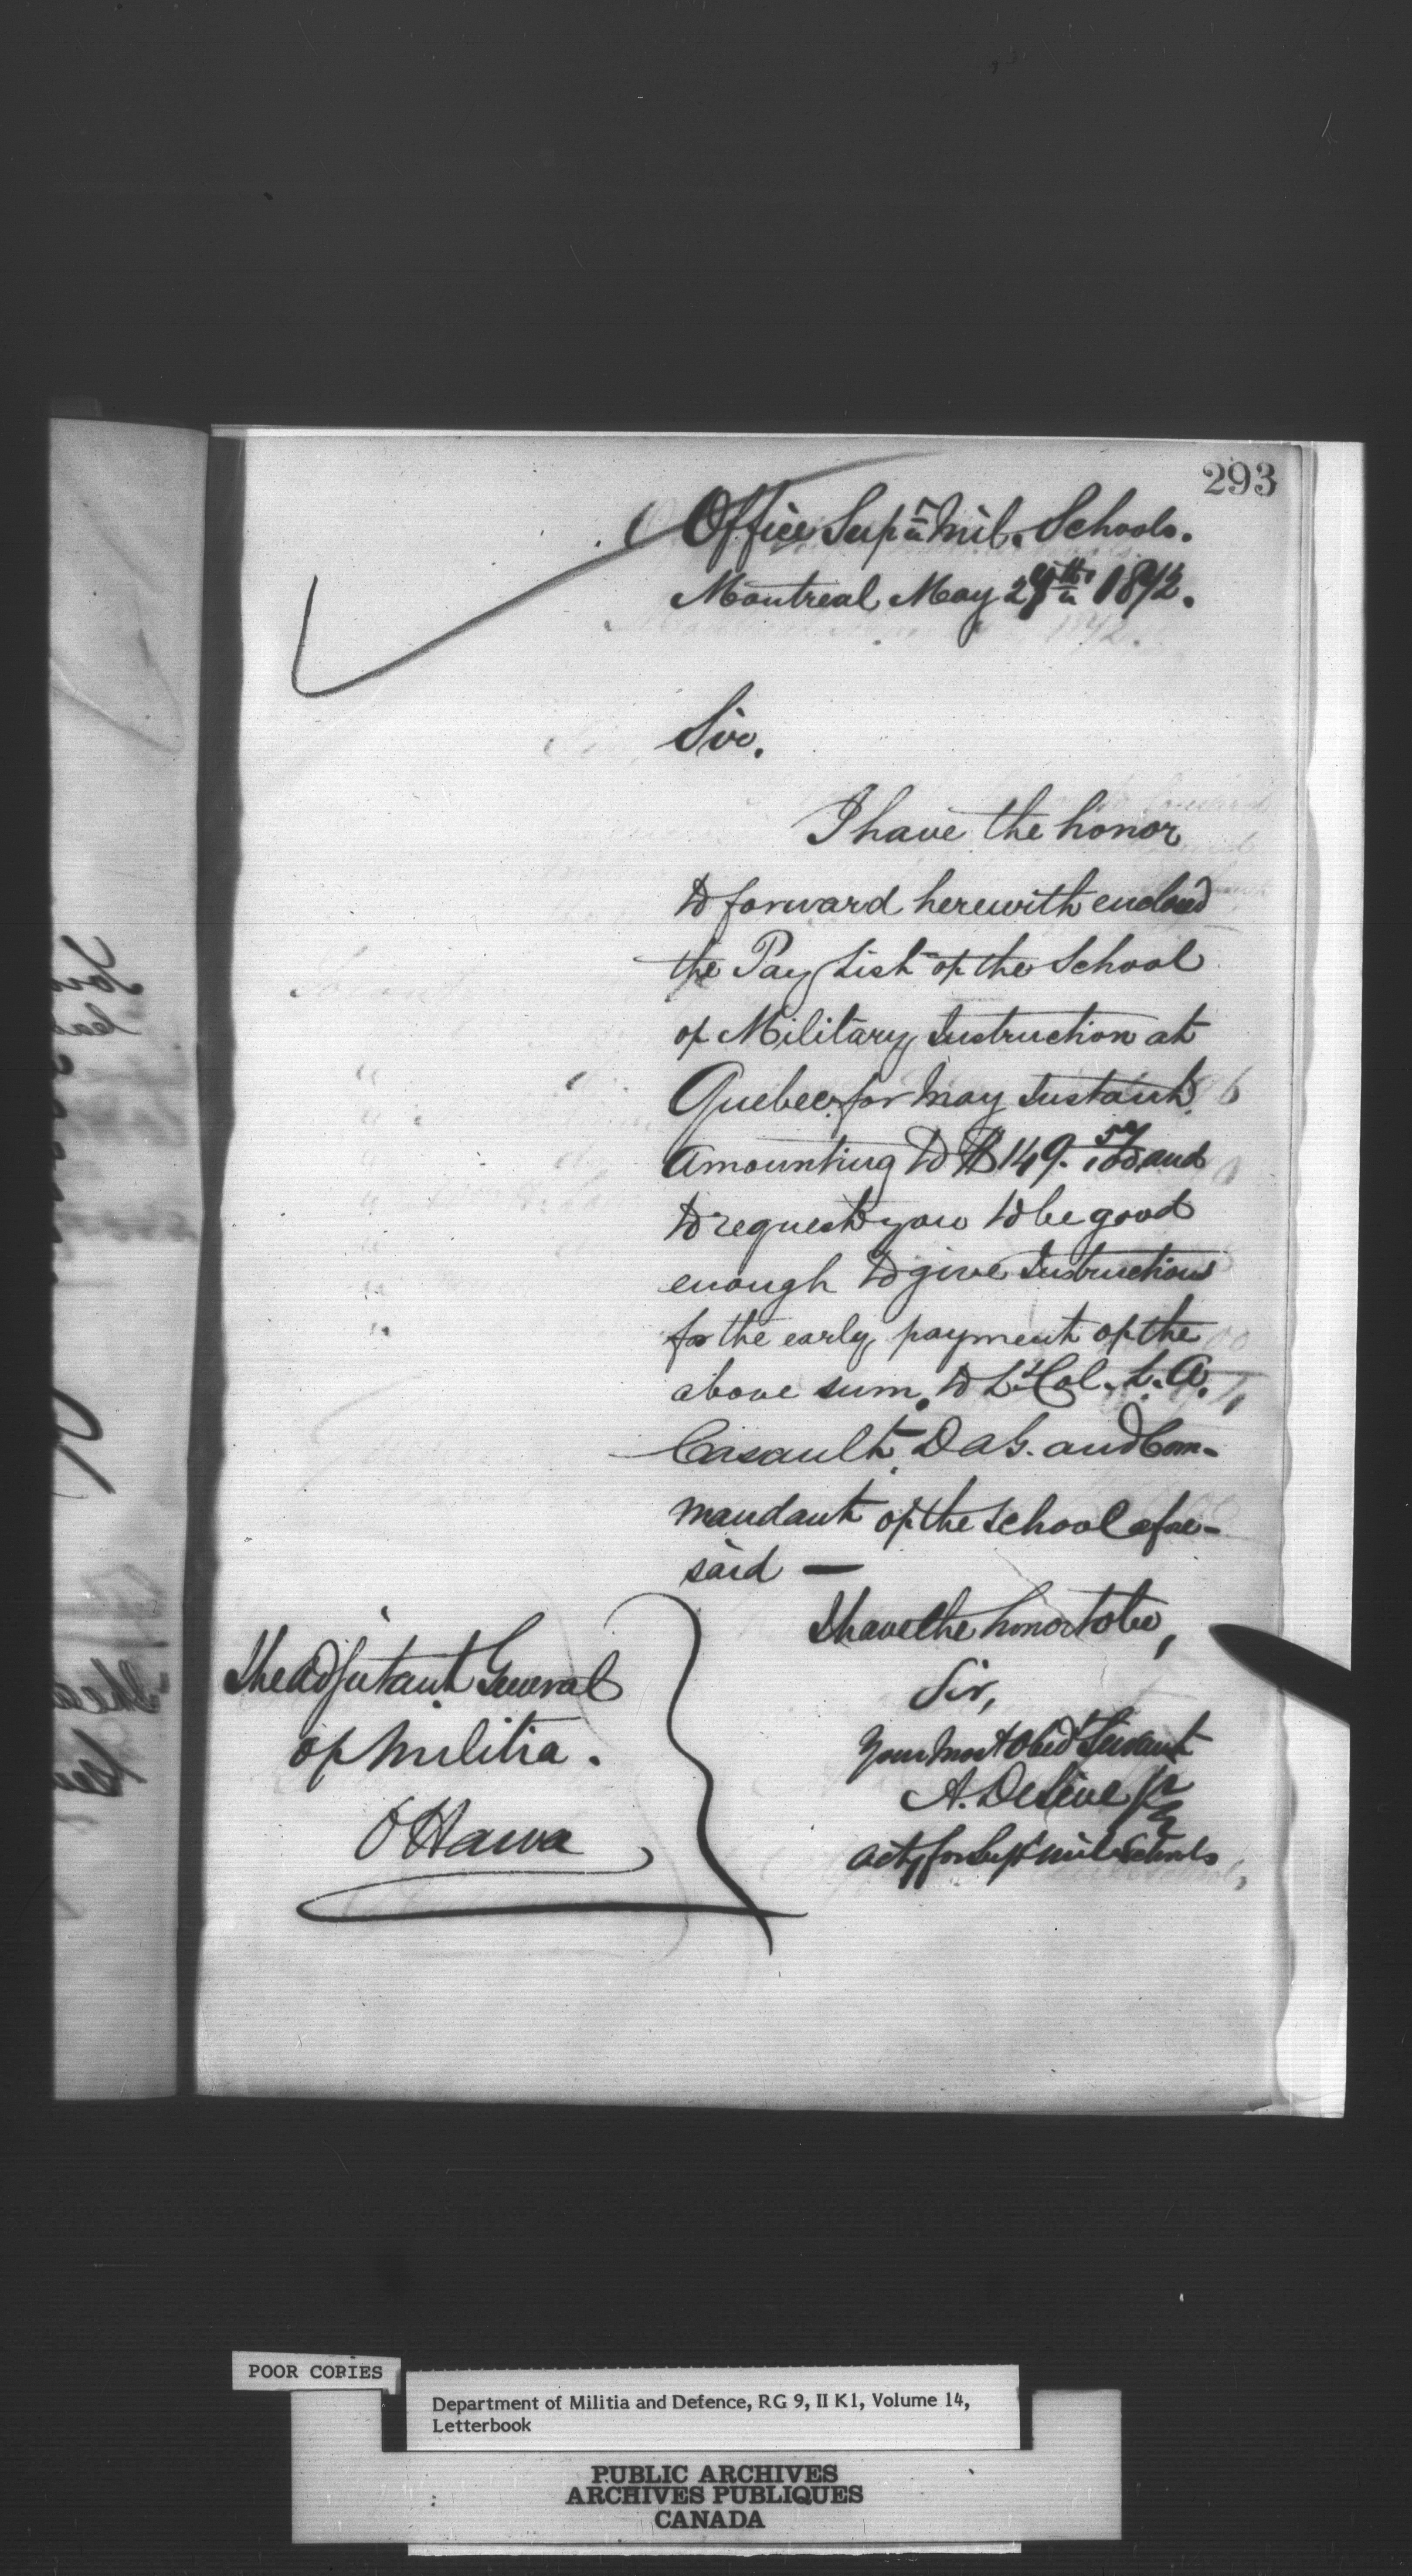 293
Office Sup.r Mil. Schools.
Montreal May 29th 1872.
Sir.
I have the honor
to forward herewith enclosed
the Pay List of the School
of Military Instruction at
Quebec for May Instant
amounting to $149. 57/100 and
to request you to be good
enough to give Instructions
for the early payment of the
above sum, to Lt Col. L. A.
Casault D A G. and Com-
mandant of the School afore-
said —
I have the honor to be,
Sir,
Your most Obedt Servant
A. DeLine
actg for Supt Mil Schools
The Adjutant General
of Militia.
Ottawa
POOR COPIES
Department of Militia and Defence, RG 9, II K1, Volume 14,
Letterbook
PUBLIC ARCHIVES
ARCHIVES PUBLIQUES
CANADA